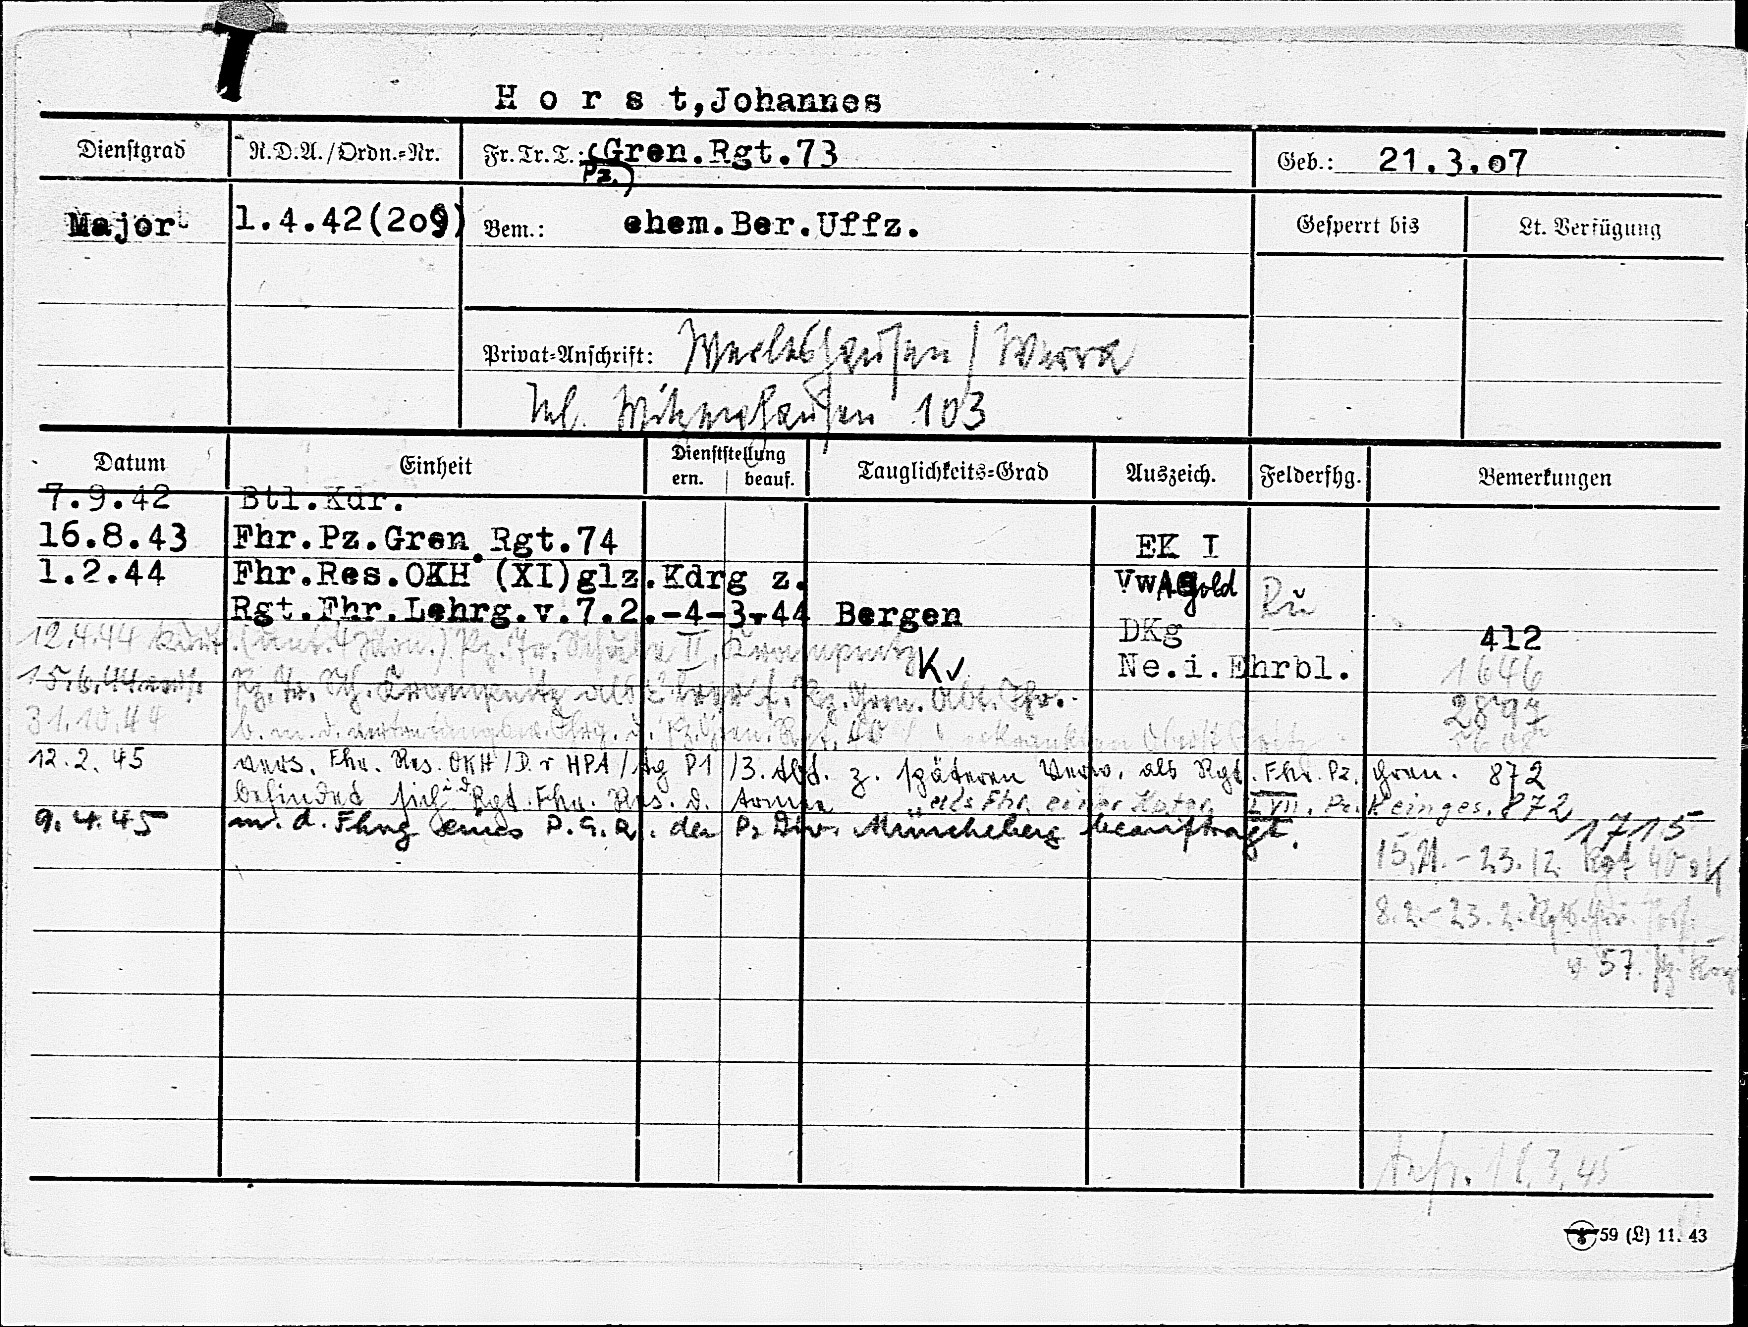 H o r s t,Johannes
Dienstgrad R.D.A./Ordn.-Nr. Fr.Tr.T.: (Pz.) Gren.Rgt.73 Geb.: 21.3.07
Major 1.4.42(209) Bem.: ehem.Ber.Uffz. Gesperrt bis Lt. Verfügung
Privat-Anschrift: / Werra
Tel. Witzenhausen 103
Datum Einheit Dienststellung ern. beauf. Tauglichkeits-Grad Auszeich. Felderfhg. Bemerkungen
7.9.42 Btl.Kdr.
16.8.43 Fhr.Pz.Gren.Rgt.74 EK I
1.2.44 Fhr.Res.OKH (XI)glz.Kdrg z. VwA gold
Rgt.Fhr.Lehrg.v.7.2.-4-3.44 Bergen DKg 412
12.4.44 Pz. Tr. Schule II, Krampnitz Kv Ne.i.Ehrbl. 1646
15.6.44 Pz. Tr. Sch. Krampnitz als f. Pz. Gren. 2897
31.10.44 b. m. d. Pz. Gren. Rgt. 40
12.2.45 vers. Fhr. Res. OKH / D. r HPA / Ag P1 / 3. Abt. z. späteren Verw. als Rgt. Fhr. Pz. Gren. 872
befindet sich i. d. Rgt. Fhr. Res. d. Armee als Fhr. einer LVII. Pz. K einges. 872
9.4.45 m. d. Fhrg eines P.G.R. der Pz Div. Müncheberg beauftragt. 1715
15.11.-23.12 Rgt 40
8.2.-23.2.
57. Pz.
Anfr. 18.3.45
59 (L) 11. 43